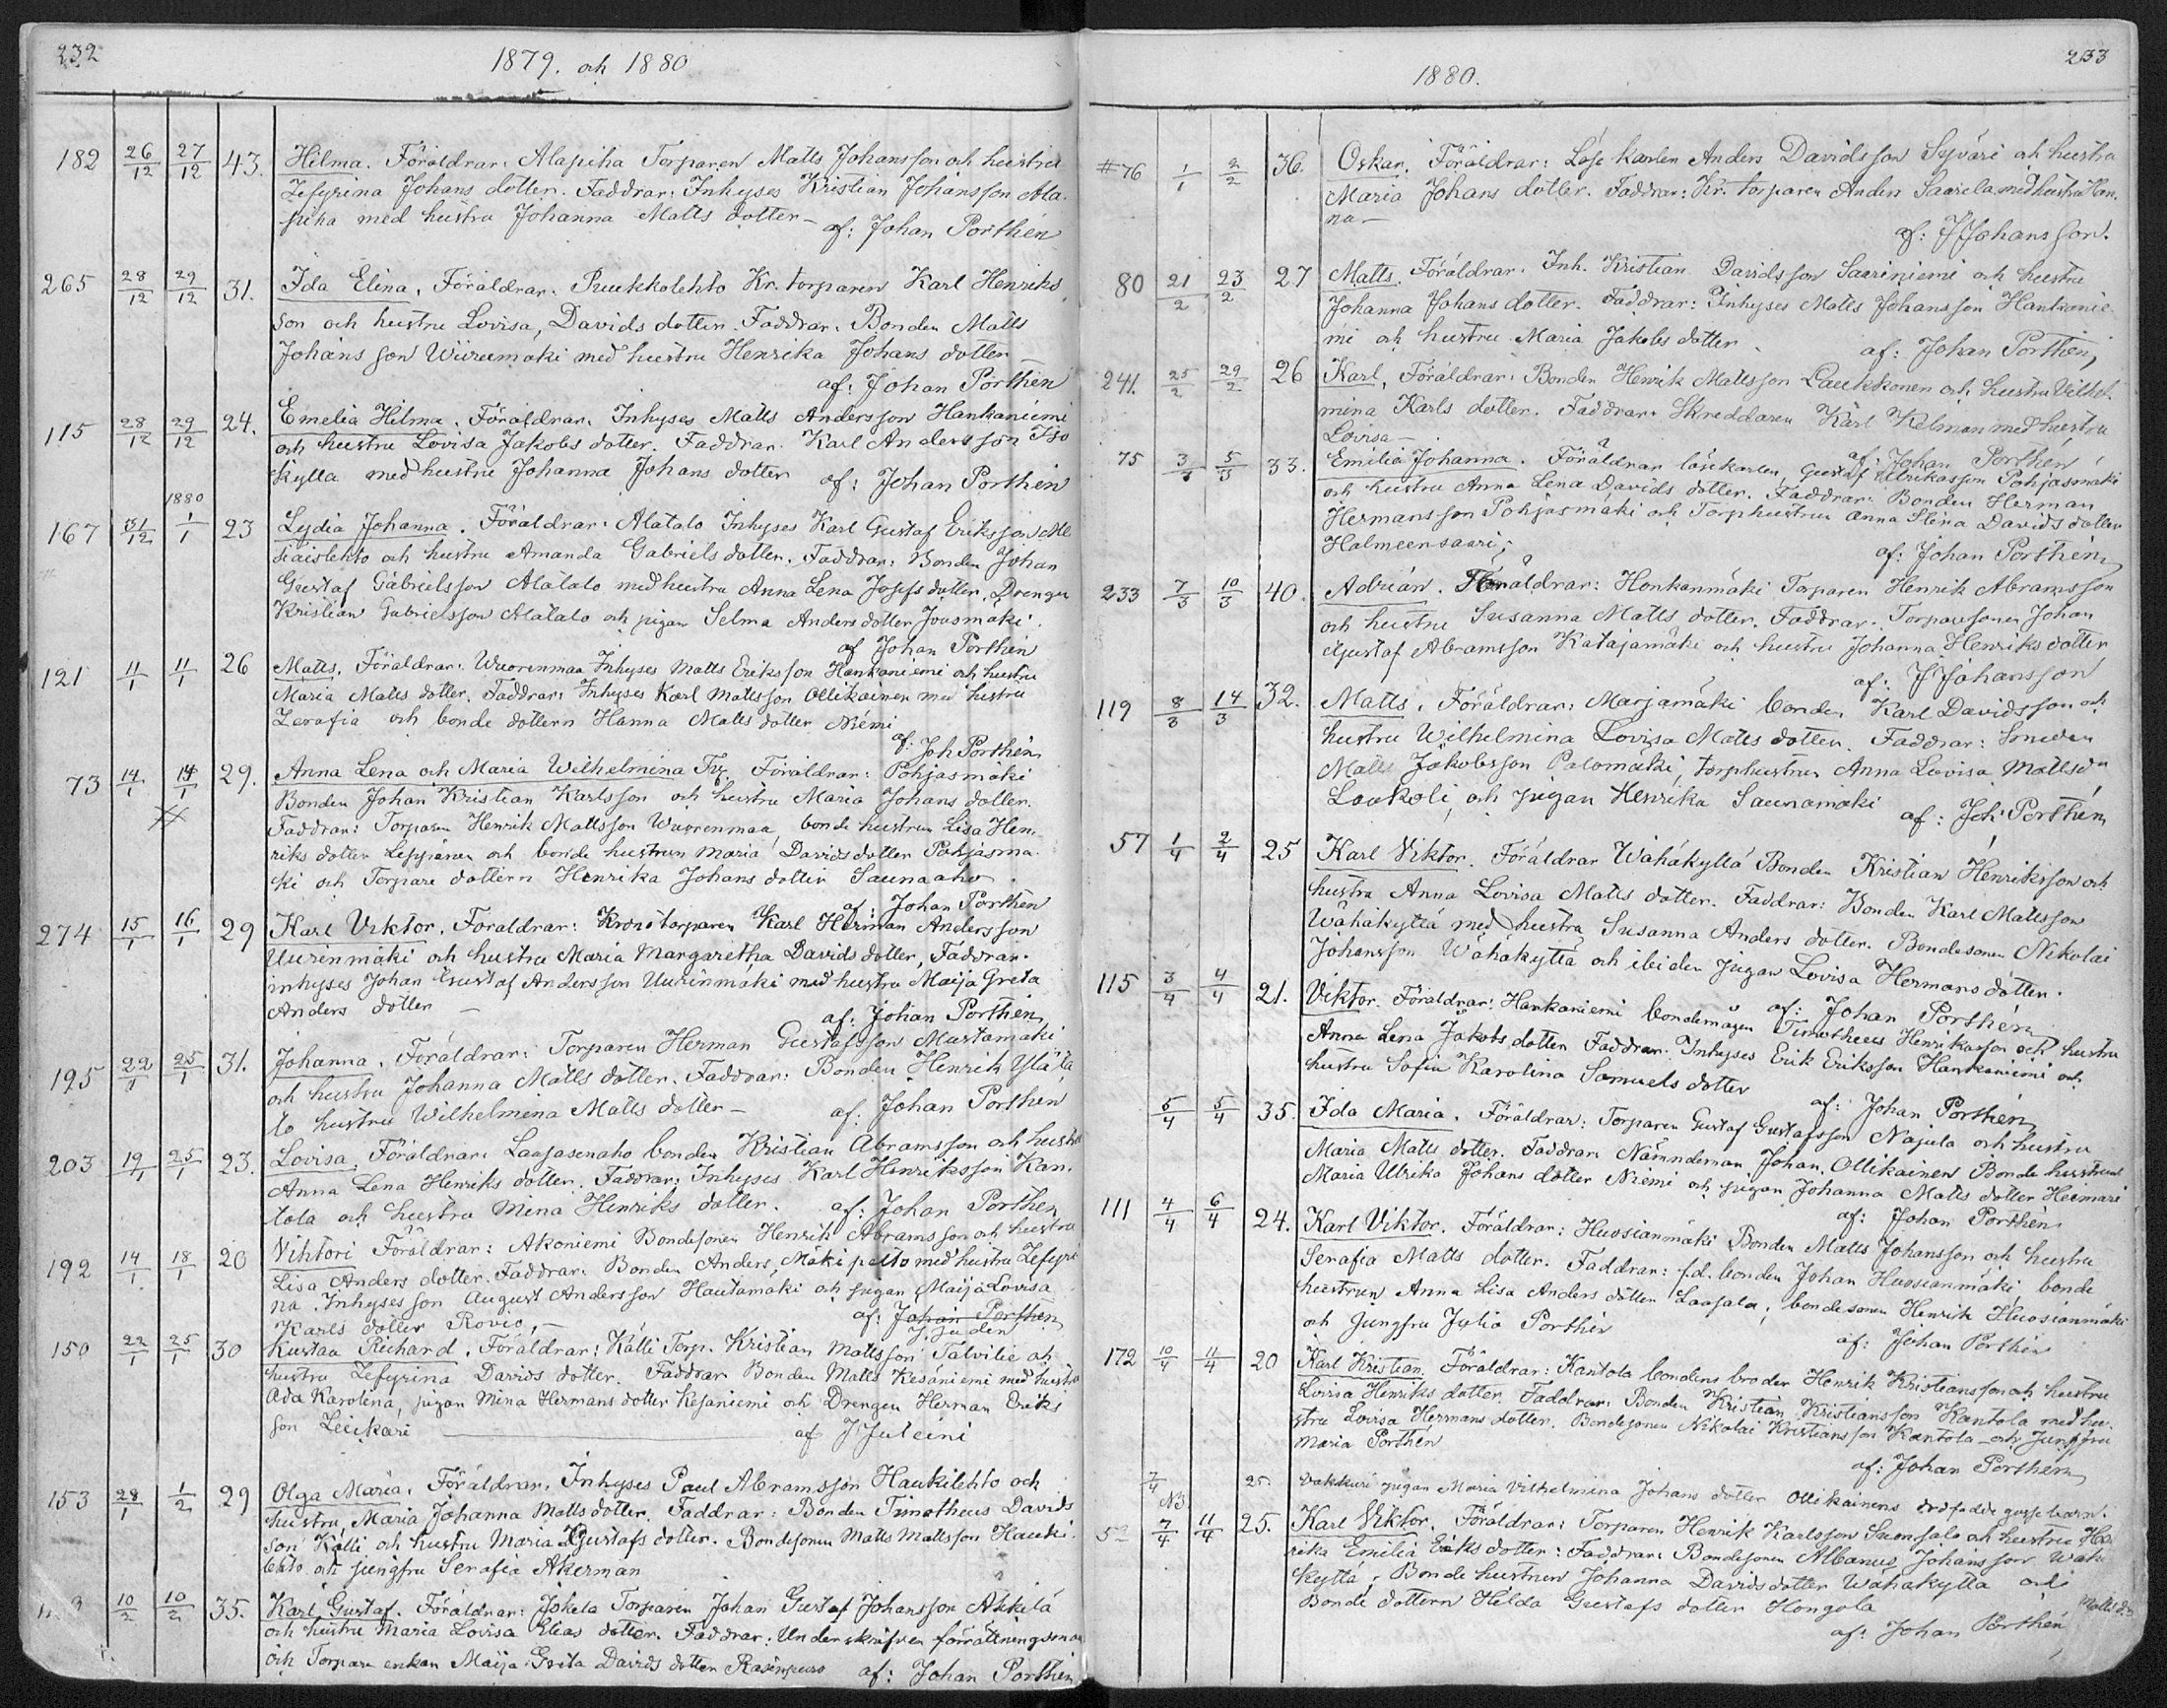 232
1879. och 1880
182 26/12 27/12 43. Hilma. Föräldrar: Alapiha Torparen Matts Johansson och hustru
Zefyrina Johans dotter. Faddrar: Inhyses Kristian Johansson Ala-
piha med hustru Johanna Matts dotter –
af: Johan Porthén
265 28/12 29/12 31. Ida Elina. Föräldrar: Puukkolehto Kr. torparen Karl Henriks
son och hustru Lovisa, Davids dotter. Faddrar: Bonden Matts
Johansson Wiirumäki med hustru Henrika Johans dotter –
af: Johan Porthén
115 28/12 29/12 24. Emelia Hilma. Föräldrar: Inhyses Matts Andersson Hankaniemi
och hustru Lovisa Jakobs dotter. Faddrar: Karl Andersson Iso
kylla med hustru Johanna Johans dotter af: Johan Porthén
1880
167 31/12 1/1 23 Lydia Johanna. Föräldrar: Alatalo Inhyses Karl Gustaf Eriksson
och hustru Amanda Gabriels dotter. Faddrar: Bonden Johan
Gustaf Gabrielsson Alatalo med hustru Anna Lena Josefs dotter, Drengen
Kristian Gabrielsson Alatalo och pigan Selma Anders dotter Jousmäki.
af Johan Porthén
121 11/1 11/1 26 Matts. Föräldrar: Wuorenmaa Inhyses Matts Eriksson Hankaniemi och hustru
Maria Matts dotter. Faddrar: Inhyses Karl Mattsson Ollikainen med hustru
Serafia och bonde dottern Hanna Matts dotter Niemi
af: Joh Porthén
73 14/1 14/1 29. Anna Lena och Maria Wilhelmina Tv. Föräldrar: Pohjasmäki
Bonden Johan Kristian Karlsson och hustru Maria Johans dotter.
Faddrar: Torparen Henrik Mattsson Wuorenmaa, bonde hustrun Lisa Hen-
riks dotter Leppänen och bonde hustrun Maria Davids dotter Pohjasmä-
ki och Torpare dottern Henrika Johans dotter Saunaaho.
af: Johan Porthén
274 15/1 16/1 29 Karl Viktor. Föräldrar: Kronotorparen Karl Herman Andersson
Uurinmäki och hustru Maria Margaretha Davids dotter, Faddrar:
inhyses Johan Gustaf Andersson Uurinmäki med hustru Maija Greta
Anders dotter –
af: Johan Porthén
195 22/1 25/1 31. Johanna. Föräldrar: Torparen Herman Gustafsson Mustamäki
och hustru Johanna Matts dotter. Faddrar: Bonden Henrik Yläta
lo hustru Wilhelmina Matts dotter – af: Johan Porthén
203 19/1 25/1 23. Lovisa. Föräldrar: Laajasenaho bonden Kristian Abramsson och hustru
Anna Lena Henriks dotter. Faddrar: Inhyses Karl Henriksson Kan-
tola och hustru Mina Henriks dotter. af: Johan Porthén
192 14/1 18/1 20 Vihtori Föräldrar: Akoniemi Bondesonen Henrik Abramsson och hustru
Lisa Anders dotter. Faddrar: Bonden Anders Mäkipelto med hustru Zefyri
na, Inhyses son August Andersson Hautamäki och pigan Maija Lovisa
Karls dotter Rovio, –
af: Johan Porthén
150 22/1 25/1 30 Kustaa Richard. Föräldrar: Källi Torp. Kristian Mattsson Talvilie och
hustru Zefyrina Davids dotter. Faddrar Bonden Matts Kesäniemi med hustru
Ada Karolina, pigan Mina Hermans dotter Kesäniemi och Drengen Herman Eriks
son Leiikari af J Juleini
153 28/1 1/2 29 Olga Maria. Föräldrar: Inhyses Paul Abramsson Haukilehto och
hustru Maria Johanna Matts dotter. Faddrar: Bonden Timotheus Davids
son Källi och hustru Maria Gustafs dotter. Bondesonen Matts Mattsson Hauki-
lehto och jungfru Serafia Åkerman
10/2 10/2 35. Karl Gustaf. Föräldrar: Jokela Torparen Johan Gustaf Johansson Akkila
och hustru Maria Lovisa Elias dotter. Faddrar: Underskrifven förrättningsman
och Torpare enkan Maija Greta Davids dotter Rasinpuro af: Johan Porthén
233
1880.
#76 1/1 2/2 36. Oskar. Föräldrar: Lösekarlen Anders Davidsson Syväri och hustru
Maria Johans dotter. Faddrar: Kr. torparen Anders Saarela med hustru Han-
na –
af: J Johansson.
80 21/2 23/2 27 Matts. Föräldrar: Inh. Kristian Davidsson Saariniemi och hustru
Johanna Johans dotter. Faddrar: Inhyses Matts Johansson Hankanie-
mi och hustru Maria Jakobs dotter.
af: Johan Porthén,
241. 25/2 29/2 26 Karl. Föräldrar: Bonden Henrik Mattsson Laukkonen och hustru Vilhel-
mina Karls dotter. Faddrar: Skreddaren Karl Kelman med hustru
Lovisa –
af: Johan Porthén
75 3/3 5/3 33. Emilia Johanna. Föräldrar lösekarlen Gustaf Ulrikasson Pohjasmäki
och hustru Anna Lena Davids dotter. Faddrar: Bonden Herman
Hermansson Pohjasmäki och Torphustrun Anna Stina Davids dotter
Halmeensaari;
af: Johan Porthén
233 7/3 10/3 40. Adrian. Föräldrar: Honkanmäki Torparen Henrik Abramsson
och hustru Susanna Matts dotter. Faddrar: Torparsonen Johan
Gustaf Abramsson Katajamäki och hustru Johanna Henriks dotter
af: J Johansson
119 8/3 14/3 32. Matts. Föräldrar: Marjamäki bonden Karl Davidsson och
hustru Wilhelmina Lovisa Matts dotter. Faddrar: Smeden
Matts Jakobsson Palomäki, torphustrun Anna Lovisa Mattsdr
Laukoli, och pigan Henrika Saunamäki
af: Joh Porthén
57 1/4 2/4 25 Karl Viktor. Föräldrar Wähäkyttä Bonden Kristian Henriksson och
hustru Anna Lovisa Matts dotter. Faddrar: Bonden Karl Mattsson
Wähäkyttä med hustru Susanna Anders dotter. Bondesonen Nikolai
Johansson Wähäkyttä och ibiden pigan Lovisa Hermans dotter.
af: Johan Porthén
115 3/4 4/4 21. Viktor. Föräldrar: Hankaniemi bondemågen Timotheus Henriksson och hustru
Anna Lena Jakobs dotter Faddrar: Inhyses Erik Eriksson Hankaniemi och
hustru Sofia Karolina Samuels dotter
af: Johan Porthén
5/4 5/4 35. Ida Maria. Föräldrar: Torparen Gustaf Gustafsson Najula och hustru
Maria Matts dotter. Faddrar Nämndeman Johan Ollikainen Bonde hustrun
Maria Ulrika Johans dotter Niemi och pigan Johanna Matts dotter
af: Johan Porthén
111 4/4 6/4 24. Karl Viktor. Föräldrar: Huosianmäki Bonden Matts Johansson och hustru
Serafia Matts dotter. Faddrar: f.d. bonden Johan Huosianmäki, bonde
hustrun Anna Lisa Anders dotter Laajala, bondesonen Henrik Huosianmäki
och Jungfru Julia Porthén
af: Johan Porthén
172 10/4 11/4 20 Karl Kristian. Föräldrar: Kantola bondens broder Henrik Kristiansson och hustru
Lovisa Henriks dotter. Faddrar: Bonden Kristian Kristiansson Kantola med hu-
stru Lovisa Hermans dotter. Bondesonen Nikolai Kristiansson Kantola och Jungfru
Maria Porthén
af: Johan Porthén
7/4 25. Vakkuri pigan Maria Vilhelmina Johans dotter Ollikainens dödfödde gossebarn.
N3.
7/4 11/4 25. Karl Viktor. Föräldrar: Torparen Henrik Karlsson Suonsalo och hustru Hen
rika Emilia Eriks dotter: Faddrar: Bondesonen Albanus Johansson Wähä
kyttä, Bonde hustrun Johanna Davids dotter Wähäkyttä och
Bonde dottern Hilda Gustafs dotter Hongola
af: Johan Porthén